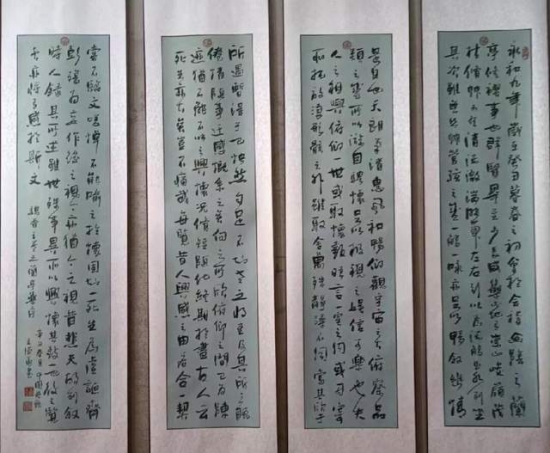 永和九年歲在癸丑暮春之初會於會稽山陰之蘭
亭修禊事也群賢畢至少長咸集此地有崇山峻嶺茂
林修竹又有清流激湍映帶左右引以為流觴曲水列坐
其次雖無絲竹管弦之盛一觴一詠亦足以暢敘幽情
是日也天朗氣清惠風和暢仰觀宇宙之大俯察品
類之盛所以游目騁懷足以極視聽之娛信可樂也夫
人之相與俯仰一世或取諸懷抱晤言一室之內或因寄
所託放浪形骸之外雖取舍萬殊靜躁不同當其欣於
所遇暫得於己快然自足不知老之將至及其所之既
倦情隨事遷感慨係之矣向之所欣俯仰之間已為陳
跡猶不能不以之興懷況修短隨化終期於盡古人云
死生亦大矣豈不痛哉每覽昔人興感之由若合一契
嘗不臨文嗟悼不能喻之於懷固知一死生為虛誕齊
彭殤為妄作後之視今亦猶今之視昔悲夫故列敘
時人錄其所述雖世殊事異所以興懷其致一也後之覽
者亦將有感於斯文